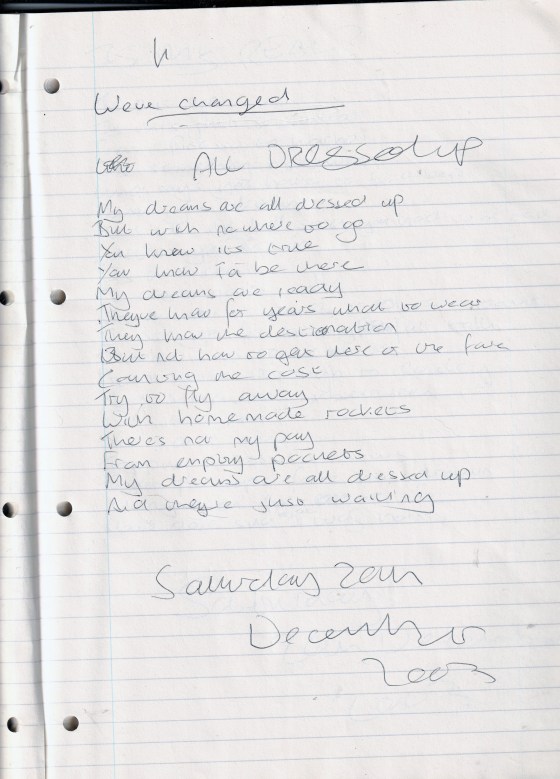 We've changed
ALL DRessed up
My dreams are all dressed up
But with nowhere to go
You know its true
You know I'd be there
My dreams are ready
They've know for years what to wear
They know the destination
But not how to get there or the fare
Counting the cost
Try to fly away
With homemade rockets
There's no my pay
From empty pockets
My dreams are all dressed up
And they're just waiting
Saturday 20th
December
2003